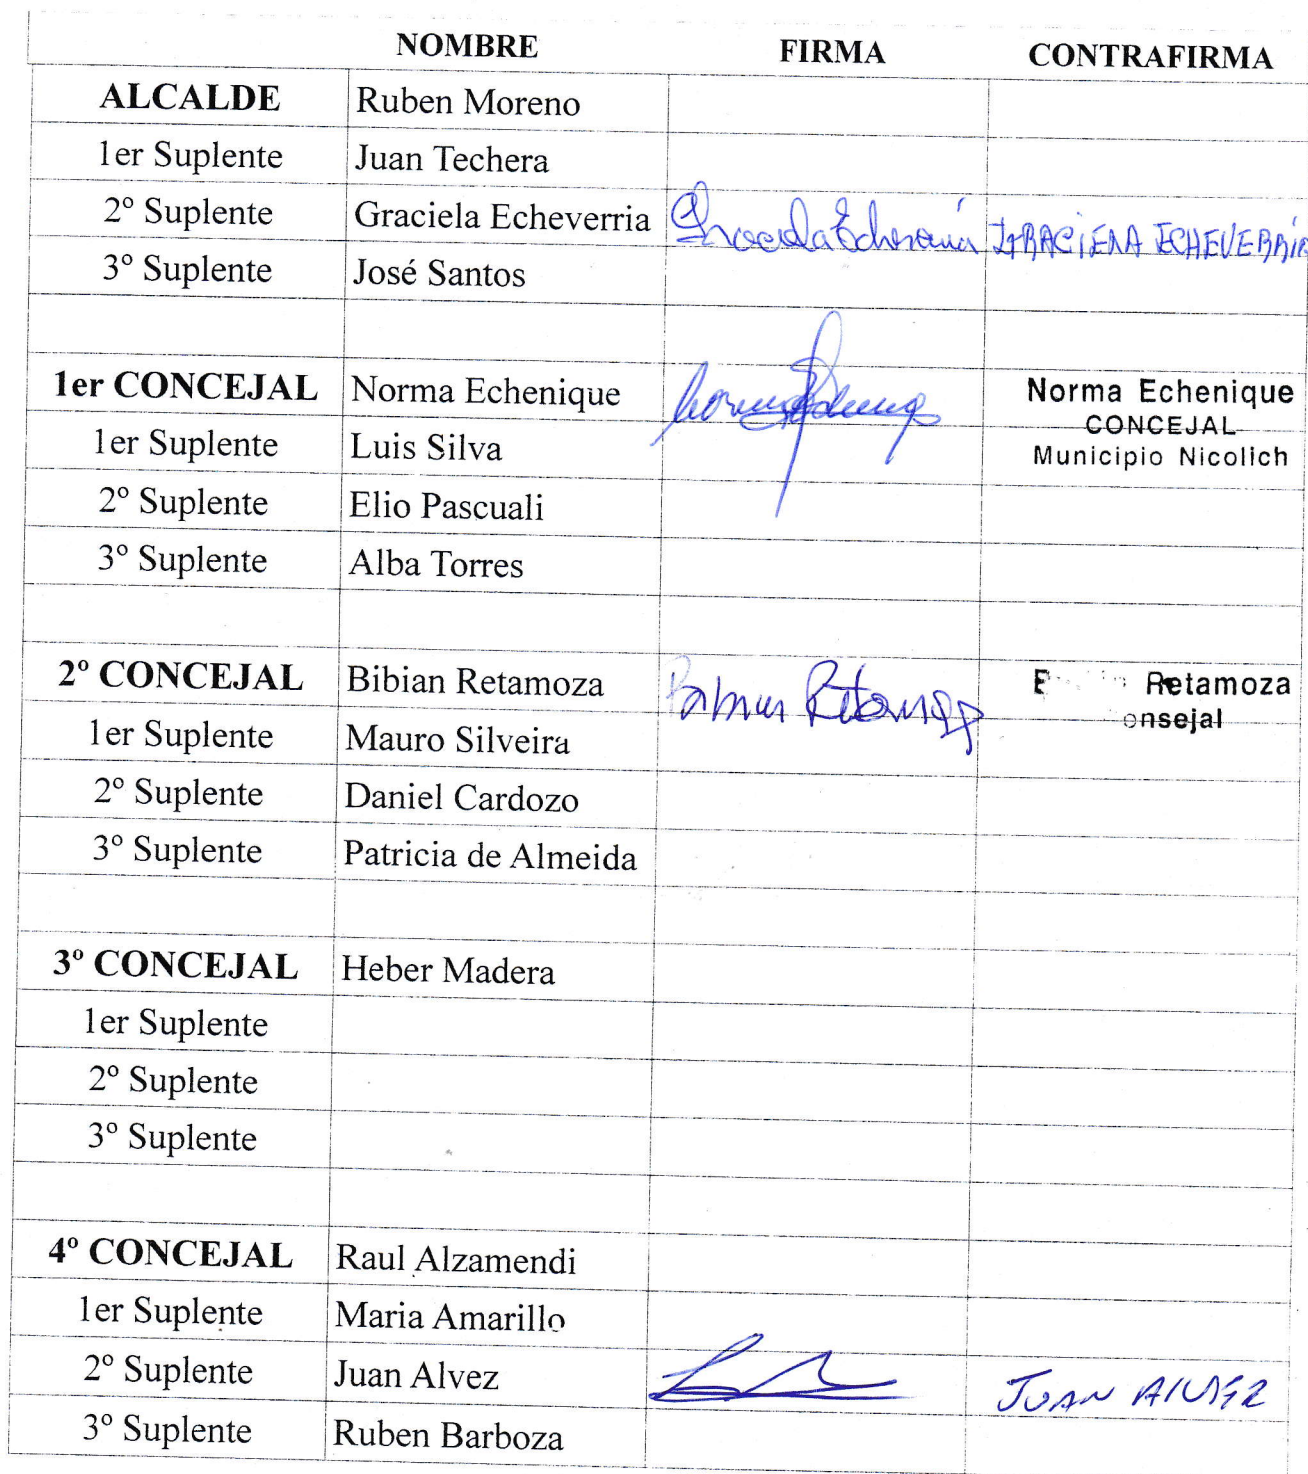 NOMBRE FIRMA CONTRAFIRMA
ALCALDE Ruben Moreno
1er Suplente Juan Techera
2º Suplente Graciela Echeverria Graciela Echeverría GRACIELA ECHEVERRÍA
3º Suplente José Santos
1er CONCEJAL Norma Echenique Norma Echenique
CONCEJAL
1er Suplente Luis Silva Municipio Nicolich
2º Suplente Elio Pascuali
3º Suplente Alba Torres
2º CONCEJAL Bibian Retamoza Bibian Retamoza Retamoza
onsejal
1er Suplente Mauro Silveira
2º Suplente Daniel Cardozo
3º Suplente Patricia de Almeida
3º CONCEJAL Heber Madera
1er Suplente
2º Suplente
3º Suplente
4º CONCEJAL Raul Alzamendi
1er Suplente Maria Amarillo
2º Suplente Juan Alvez JUAN AlVEZ
3º Suplente Ruben Barboza